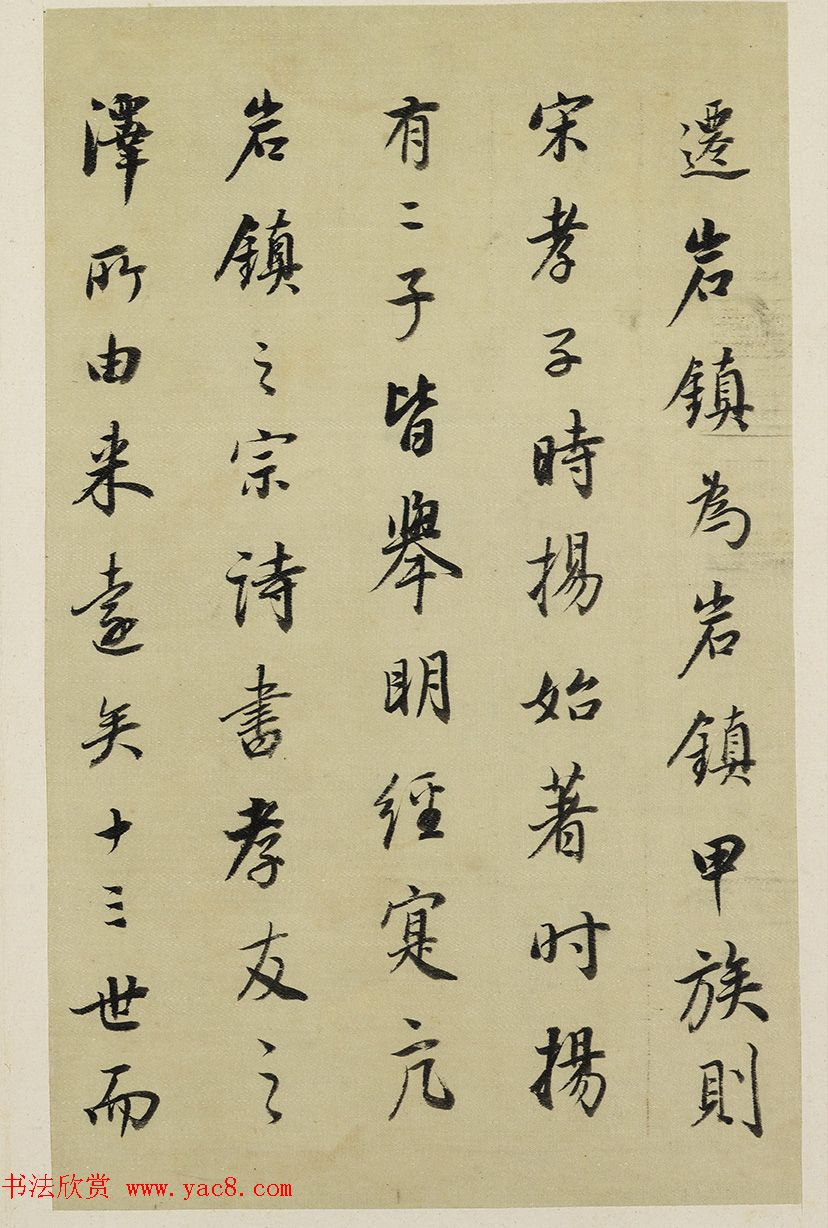 遷岩鎮為岩鎮甲族則
宋孝子時揚始著时揚
有二子皆舉明經寔亢
岩鎮之宗詩書孝友之
澤所由来遠矣十三世而
书法欣赏 www.yac8.com